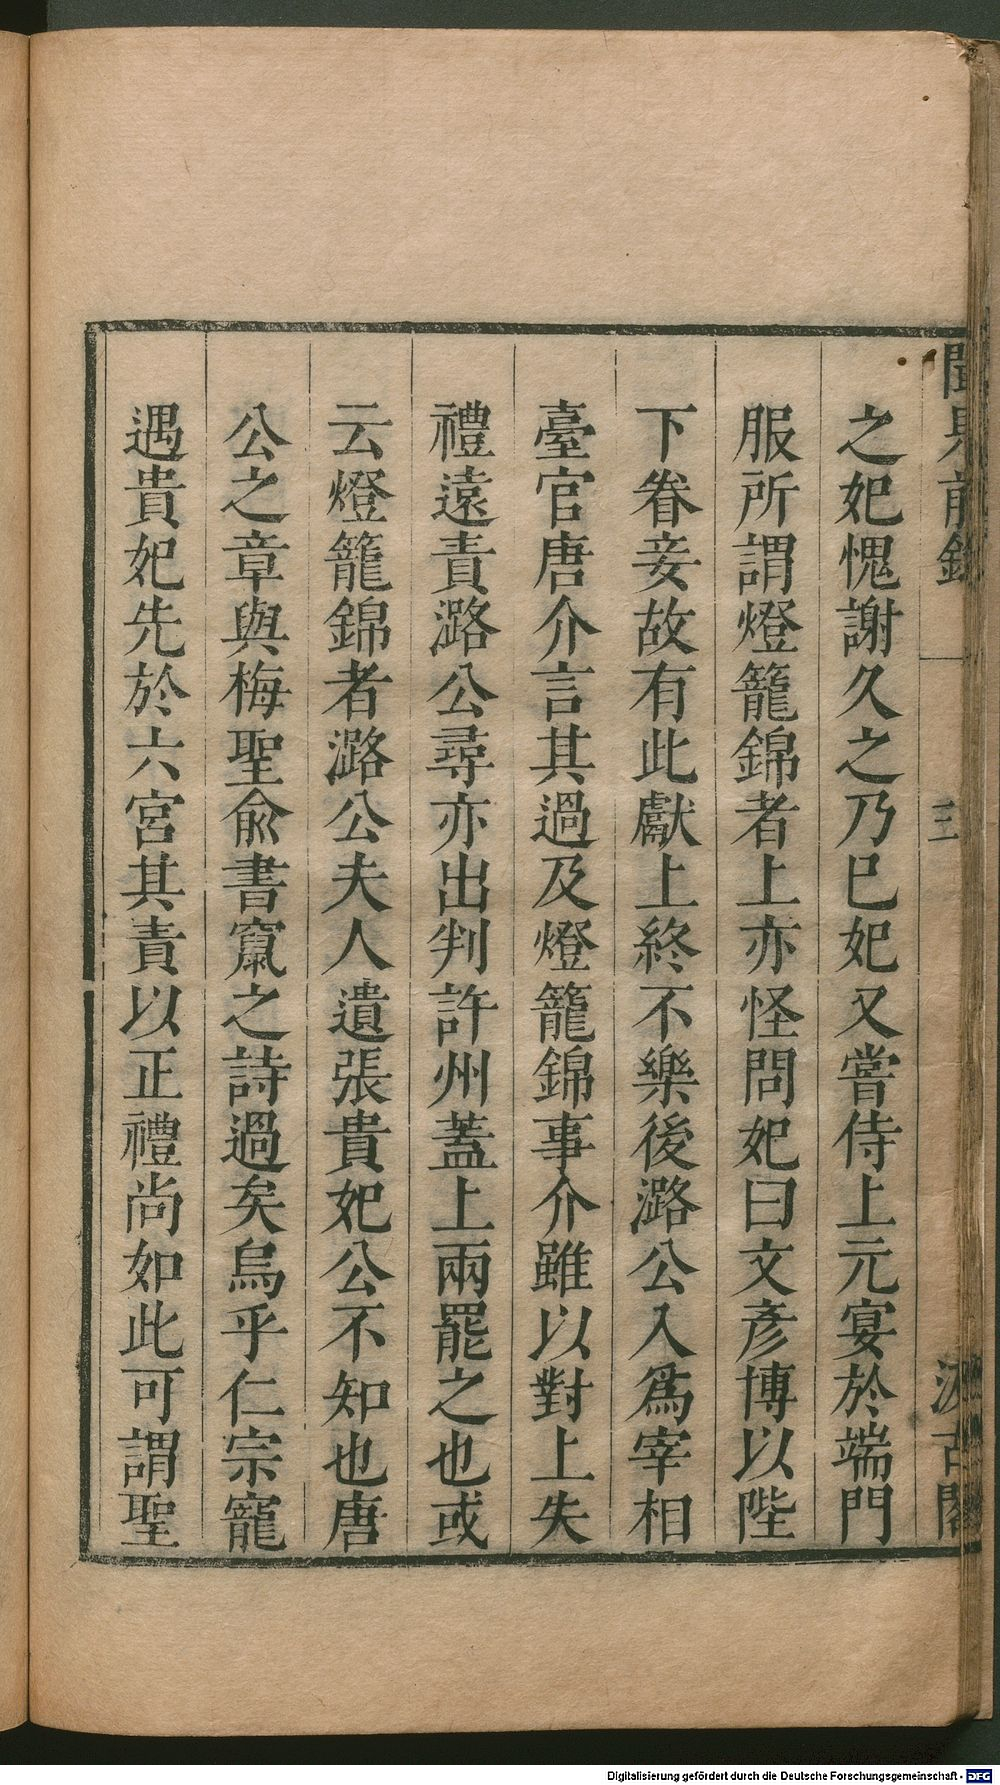 聞見前錄
三
汲古閣
之妃愧謝久之乃巳妃又嘗侍上元宴於端門
服所謂燈籠錦者上亦怪問妃曰文彥博以陛
下眷妾故有此獻上終不樂後潞公入爲宰相
臺官唐介言其過及燈籠錦事介雖以對上失
禮遠責潞公尋亦出判許州蓋上兩罷之也或
云燈籠錦者潞公夫人遺張貴妃公不知也唐
公之章與梅聖兪書竄之詩過矣烏乎仁宗寵
遇貴妃先於六宮其責以正禮尚如此可謂聖
Digitalisierung gefördert durch die Deutsche Forschungsgemeinschaft - DFG